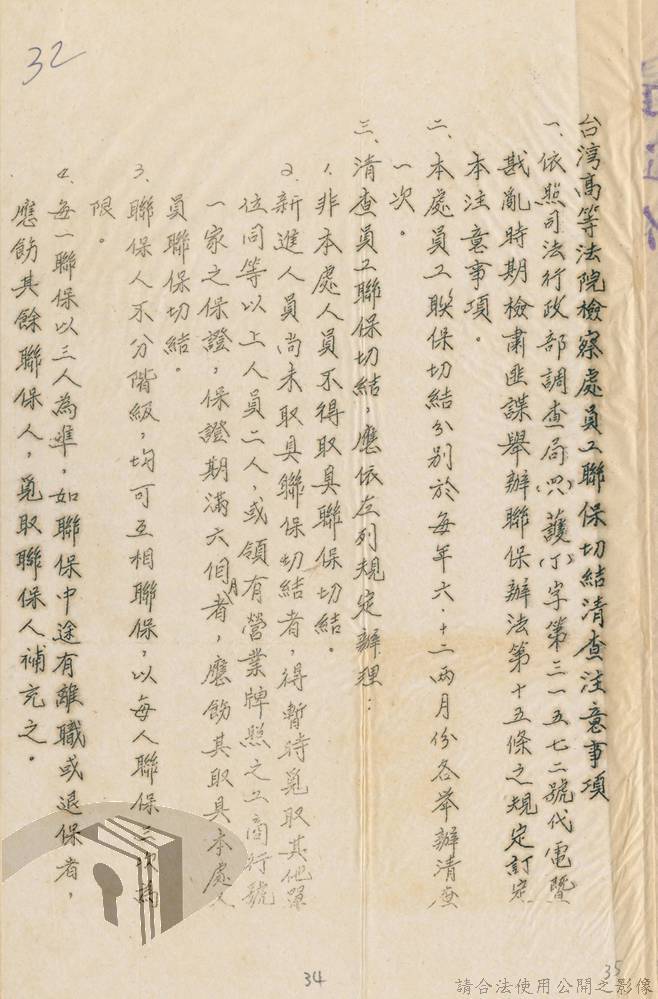 32
台湾高等法院檢察處員工聯保切結清查注意事項
一、依照司法行政部調查局(四八)護(丁)字第三一五七二號代電暨
戡亂時期檢肅匪諜舉辦聯保辦法第十五條之規定訂定
本注意事項。
二、本處員工联保切結分別於每年六·十二兩月份各举辦清查
一次。
三、清查員工聯保切結，應依左列規定辦理：
1.非本處人員不得取具聯保切結。
2.新進人員尚未取具聯保切結者，得暫時覓取其他單
位同等以上人員二人，或領有營業牌照之工商行號
一家之保證，保證期滿六個月者，應飭其取具本處人
員聯保切結。
3.聯保人不分階級，均可互相聯保，以每人聯保三次為
限。
4.每一聯保以三人為準，如聯保中途有離職或退保者，
應飭其餘聯保人，覓取聯保人補充之。
34
35
請合法使用公開之影像